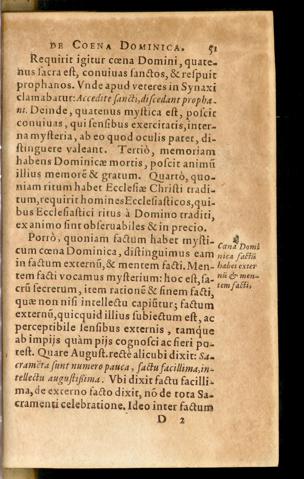 DE COENA DOMINICA. 51
Requirit igitur cœna Domini, quate-
nus sacra est, conuiuas sanctos, & respuit
prophanos. Vnde apud veteres in Synaxi
clamabatur: Accedite sancti, discedant propha-
ni. Deinde, quatenus mystica est, poscit
conuiuas, qui sensibus exercitatis, inter-
na mysteria, ab eo quod oculis patet, di-
stinguere valeant. Tertiò, memoriam
habens Dominicæ mortis, poscit animū
illius memorē & gratum. Quartò, quo-
niam ritum habet Ecclesiæ Christi tradi-
tum, requirit homines Ecclesiasticos, qui-
bus Ecclesiastici ritus à Domino traditi,
ex animo sint obseruabiles & in precio.
Porrò, quoniam factum habet mysti-
cum cœna Dominica, distinguimus eam
in factum externū, & mentem facti. Men-
tem facti vocamus mysterium: hoc est, sa-
crū secretum, item rationē & finem facti,
quæ non nisi intellectu capiūtur; factum
externū, quicquid illius subiectum est, ac
perceptibile sensibus externis, tamque
ab impijs quàm pijs cognosci ac fieri po-
test. Quare August. rectè alicubi dixit: Sa-
cramēta sunt numero pauca, factu facillima, in-
tellectu augustissima. Vbi dixit factu facilli-
ma, de externo facto dixit, nō de tota Sa-
cramenti celebratione. Ideo inter factum
D 2
Cœna Domi
nica factū
habet exter
nū & men-
tem facti,